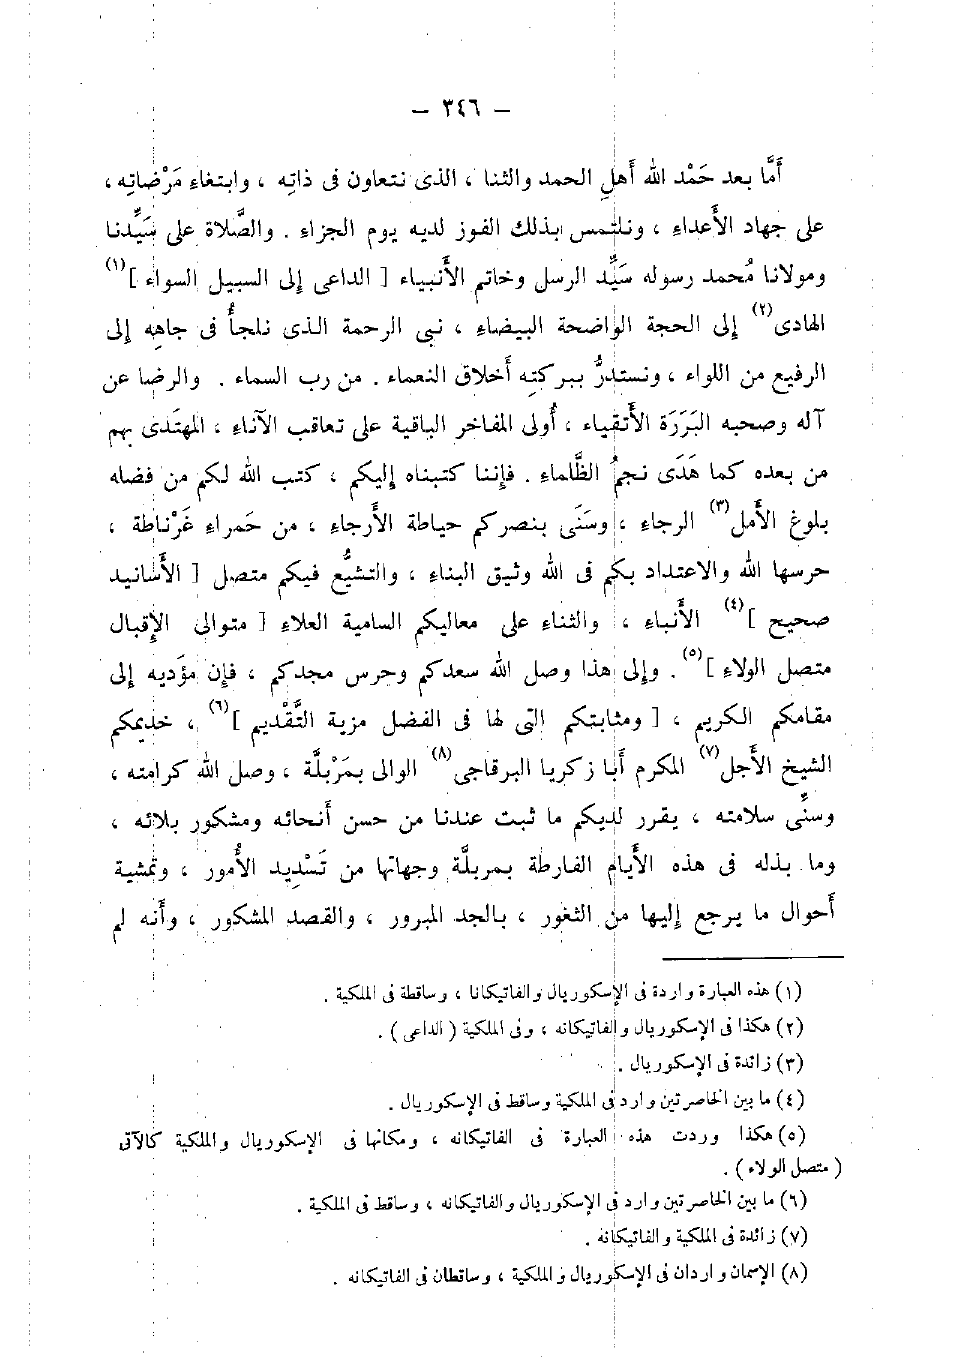 – ٣٤٦ –
أَمَّا بعد حَمْد الله أَهلِ الحمد والثنا ، الذى نتعاون فى ذاتِه ، وابتغاءِ مَرْضَاتِه ،
على جهاد الأَعداءِ ، ونلتمس بذلك الفوز لديه يوم الجزاءِ . والصَّلاة على سَيِّدنا
ومولانا مُحمد رسوله سَيِّد الرسل وخاتم الأَنبياء [ الداعى إِلى السبيل السواء ](١)
الهادى(٢) إِلى الحجة الواضحة البيضاءِ ، نبى الرحمة الذى نلجأُ فى جاهِه إِلى
الرفيع من اللواء ، ونستدرُّ ببركتِه أَخلاق النعماء . من رب السماء . والرضا عن
آله وصحبه البَرَرَة الأَتقياء ، أُولى المفاخر الباقية على تعاقب الآناءِ ، المهتَدى بهم
من بعده كما هَدَى نجمُ الظَّلماءِ . فإِننا كتبناه إِليكم ، كتب الله لكم من فضله
بلوغ الأَمل(٣) الرجاء ، وسَنَى بنصركم حياطة الأَرجاءِ ، من حَمراءِ غَرْناطة ،
حرسها الله والاعتداد بكم فى الله وثيق البناءِ ، والتشيُّع فيكم متصل [ الأَسانيد
صحيح ](٤) الأَنباء ، والثناءِ على معاليكم السامية العلاءِ [ متوالى الإِقبال
متصل الولاءِ ](٥) . وإِلى هذا وصل الله سعدكم وحرس مجدكم ، فإِن مؤَديه إِلى
مقامكم الكريم ، [ ومثابتكم التى لها فى الفضل مزية التَّقْديم ](٦) ، خديمكم
الشيخ الأَجل(٧) المكرم أَبا زكريا البرقاجى(٨) الوالى بمَرْبلَّة ، وصل الله كرامته ،
وسنَّى سلامته ، يقرر لديكم ما ثبت عندنا من حسن أَنحائه ومشكور بلائه ،
وما بذله فى هذه الأَيام الفارطة بمربلَّة وجهاتها من تَسْدِيد الأُمور ، وتمشية
أَحوال ما يرجع إِليها من الثغور ، بالجد المبرور ، والقصد المشكور ، وأَنه لم
(١) هذه العبارة واردة فى الإسكوريال والفاتيكانا ، وساقطة فى الملكية .
(٢) هكذا فى الإسكوريال والفاتيكانه ، وفى الملكية ( الداعى ) .
(٣) زائدة فى الإسكوريال .
(٤) ما بين الخاصرتين وارد فى الملكية وساقط فى الإسكوريال .
(٥) هكذا وردت هذه العبارة فى الفاتيكانه ، ومكانها فى الإسكوريال والملكية كالآتى
( متصل الولاء ) .
(٦) ما بين الخاصرتين وارد فى الإسكوريال والفاتيكانه ، وساقط فى الملكية .
(٧) زائدة فى الملكية والفاتيكانه .
(٨) الإسمان واردان فى الإسكوريال والملكية ، وساقطان فى الفاتيكانه .